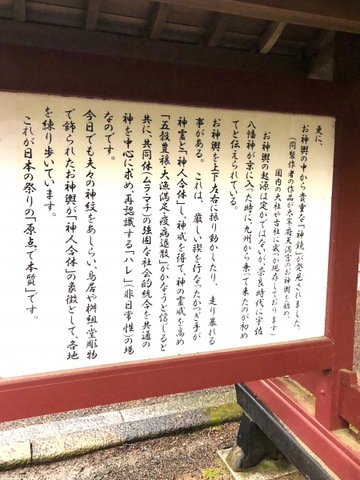 更に、
お神輿の中から貴重な「神鏡」が発見されました。
(同製作者の作品が太宰府天満宮のお神輿を始め、
国内の大社や古社に或つか現存しております)
お神輿の起源は定かではないが、奈良時代に宇佐
八幡神が京に入った時に、九州から乗って来たのが初め
てと伝えられている。
お神輿を上下左右に振り動かしたり、走り暴れる
事がある。これは、厳しい禊を行なったかつぎ手が
神霊と「神人合体」し、神威を得て、神の霊威を高め
「五穀豊穣・大漁満足・疫病退散」がかなうと信じると
共に、共同体(ムラ・マチ)の強固な社会的統合を共通の
神を中心に求め、再認識する「ハレ」(非日常性)の場
なのです。
今日でも夫々の神紋をあしらい、鳥居や桝組・堂彫物
で飾られたお神輿が「神人合体」の象徴として、各地
を練り歩いています。
これが日本の祭りの「原点で本質」です。